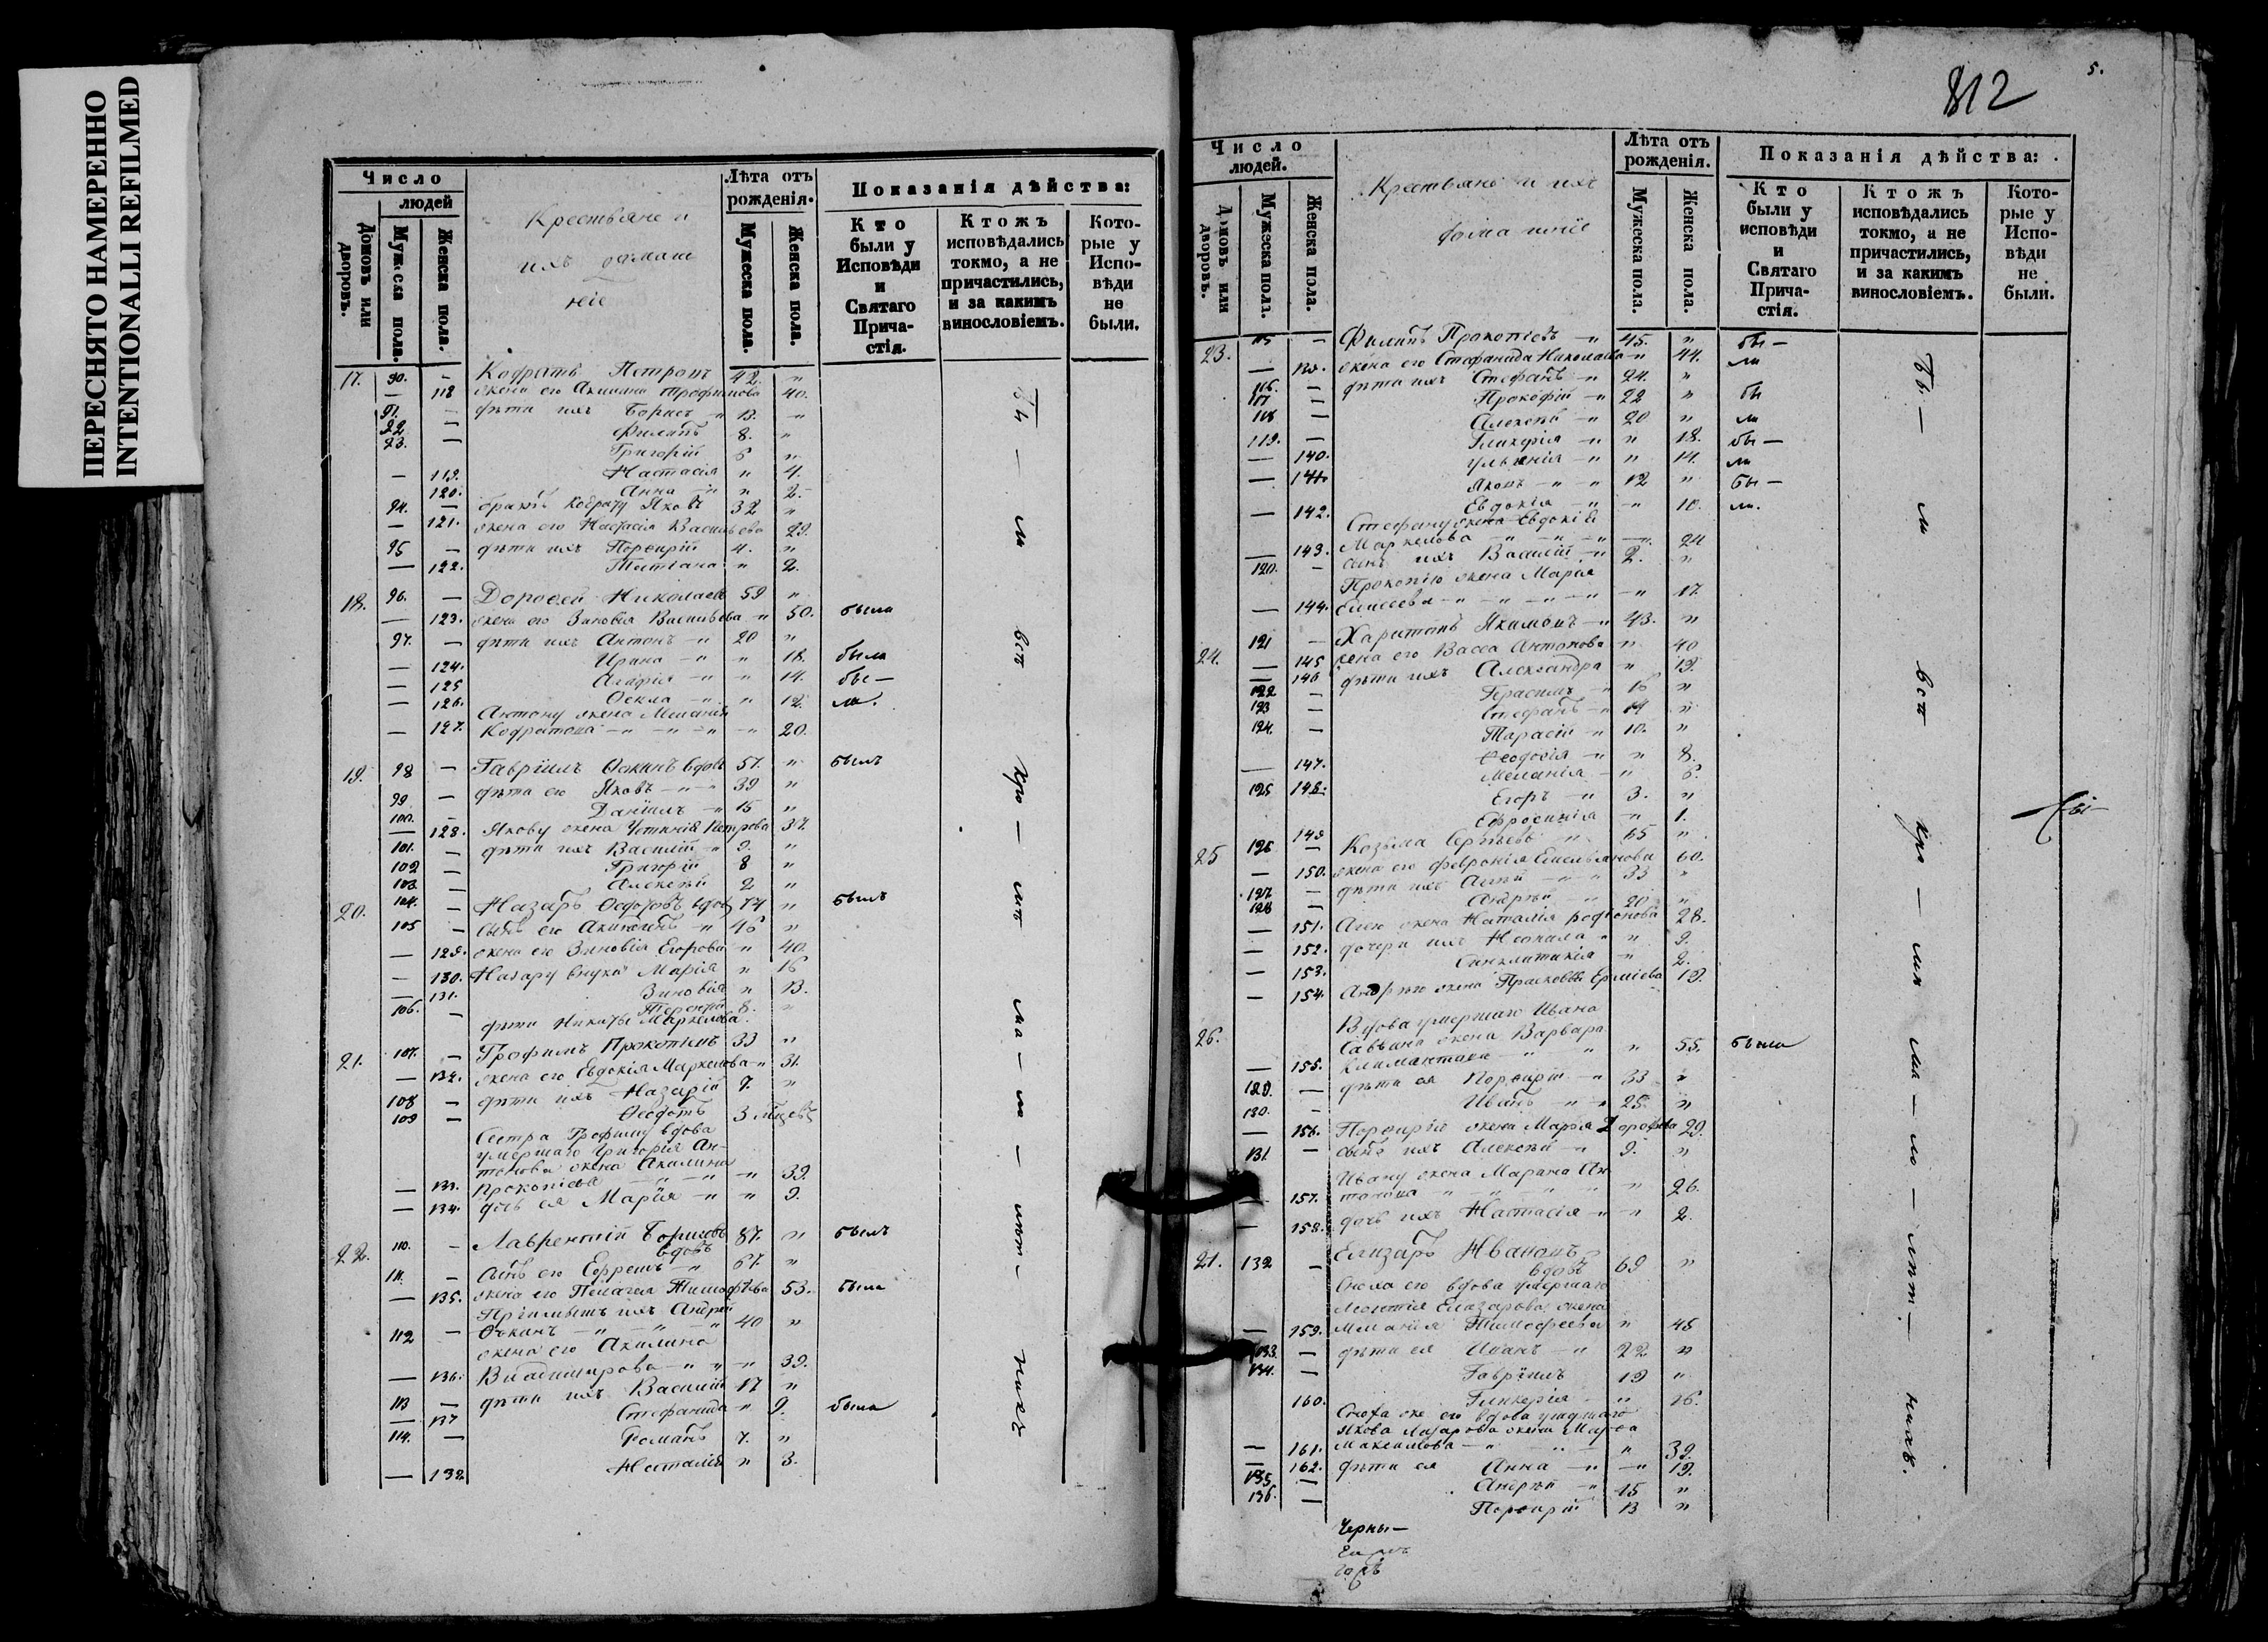 ПЕРЕСНЯТО НАМЕРЕННО
INTENTIONALLI REFILMED
Число
людей
Домовъ или дворовъ.
Мужеска пола.
Женска пола.
Крестьяне и
ихъ домаш
ніе
Лѣта отъ рожденія.
Мужеска пола.
Женска пола.
Показанія дѣйства:
Кто были у Исповѣди и Святаго Прича-стія.
Ктожъ исповѣдались токмо, а не причастились, и за какимъ винословіемъ.
Кото-рые у Испо-вѣди не были.
17. 90. — Кодратъ Петровъ 42. "
— 118 жена его Акилина Трофимова 40.
91. — дѣти ихъ Борисъ — " 13. "
92 — Филипъ 8. "
93. — Григорій 6 "
— 119. Настасія " 4.
120. Анна — " " 2.
94. — братъ Кодрату Яковъ 32 "
— 121. жена его Настасія Васильева 29.
95 — дѣти ихъ Порфирій 4. "
— 122. Татіана " 2.
18. 96. — Дорофей Николаевъ 59 "
— 123. жена его Зиновія Васильева — " 50. была
97. — дѣти ихъ Антонъ — " 20 "
— 124. Ирина — " " 18. была
— 125 Агафія — " " 14. бы—
— 126. Ѳекла — " " 12. ли.
Антону жена Меланія
— 127. Кодратова — " — " — " — " 20.
19. 98 — Гавріилъ вдовъ 57. " былъ
99 — дѣти его Яковъ — " — " 39 "
100. — Даніилъ — " 15 "
— 128. Якову жена Устинія Петрова 37.
101. — дѣти ихъ Василій — " 9. "
102 — Григорій 8 "
103. — Алексѣй 2 "
20. 104. — Назаръ вдовъ 74 " былъ
105 — сынъ его — " 46 "
— 129. жена его Зиновія Егорова — " 40.
— 130. Назару внука Марія " 16
— 131. Зиновія " 13.
106. — Терентій 8. "
дѣти Никиты Маркелова.
21. 107. — Трофимъ Прокопіевъ 33 "
— 132. жена его Евдокія Маркелова — " 31.
108 — дѣти ихъ Назарій 7. "
109 — Ѳеодотъ 3 мѣсевъ
Сестра Трофиму вдова
умершаго Григорія Ан-
тонова жена Акилина
— 133. Прокопіева — " — " — " 39.
— 134. дочь ея Марія — " " 9.
22. 110. — Лаврентій Борисовъ
вдовъ 87. " былъ
111. — Сынъ его Ефремъ — " 67. "
— 135. жена его Пелагея Тимофѣева 53. была
ихъ Андрей
112 — — " — " — " 40 "
жена его Акилина
— 136. Владимирова — " " — " 39.
113 — дѣти ихъ Василій 17 "
— 137 Стефанида " 9. была
114. — Романъ 7. "
— 138 Наталія " 3.
Бы — ли всѣ кро — мѣ ма — лѣт — нихъ
812
5.
Число людей.
Домовъ или дворовъ.
Мужеска пола.
Женска пола.
Крестьяне и ихъ
домашніе
Лѣта отъ рожденія.
Мужеска пола.
Женска пола.
Показанія дѣйства:
Кто были у исповѣди и Святаго Прича-стія.
Ктожъ исповѣдались токмо, а не причастились, и за какимъ винословіемъ.
Кото-рые у Испо-вѣди не были.
23. 115 — Филипъ Прокопіевъ — " 45. " бы —
— 139. жена его Стефанида Николаева — " 44. ли
116. — дѣти ихъ Стефанъ — " 24. "
117 — Прокофій — " 22 " бы
118 — Алексѣй — " 20 " ли
119. — Гликерія — " " 18. бы —
— 140. Ульянія — " " 14. ли
— 141. Яковъ — " — " 12 " бы —
— 142. Евдокія " — " 10. ли.
Стефану жена Евдокія
— 143. Маркелова — " — " — " — " 24
120. — сынъ ихъ Василій — " 2. "
Прокопію жена Марія
— 144. Елисеева — " — " — " — " 17.
24. 121 — Харитонъ Якимовъ — " 43. "
— 145 жена его Васса Антонова " 40
— 146 дѣти ихъ Александра " 19.
122 — Герасимъ — " 16 "
123 — Стефанъ — " 14 "
124. — Тарасій — " 10. "
— 147. Ѳеодосія — " " 8.
148. Меланія — " 6.
125 Егоръ — " 3. "
149 Ефросинія — " 1.
25 126 — Козьма Сергѣевъ — " 65 "
— 150. жена его Февронія Емельянова 60.
127 — дѣти ихъ Агѣй — " — " 33 "
128 — Андрѣй — " 20 "
— 151. Агею жена Наталія Родіонова 28.
— 152. дочери ихъ Неонила " " 9.
— 153. Синклитикія — " 2.
— 154. Андрѣю жена Прасковья Ермиева 19.
26. Вдова умершаго Ивана
Савьана жена Варвара
— 155. Климантова — " " " 55. была
129. — дѣти ея Порфирій — " 33 "
130. — Иванъ — " — " 25. "
— 156. Порфирію жена Марія Дорофѣева 29.
131. — сынъ ихъ Алексѣй — " 9. "
Ивану жена Марина Ан
— 157. тонова " " " " " 26.
— 158. дочь ихъ Настасія — " — " 2.
21. 132 — Елизаръ Ивановъ
вдовъ 69 "
Сноха его вдова умершаго
Елизарова жена
— 159. Меланія Тимофеева " 45
133. — дѣти ея Иванъ — " 22 "
134. — Гавріилъ 19 "
160. Гликерія " 16.
Сноха же его вдова умершаго
Якова Лазарова жена Марфа
— 161. Максимова — " " " 39.
— 162. дѣти ея Анна — " — " 19.
135. — Андрѣй — " 15 "
136. — Порфирій 13 "
Бы — ли всѣ кро — мѣ ма — ло — лѣт — нихъ.
Черны —